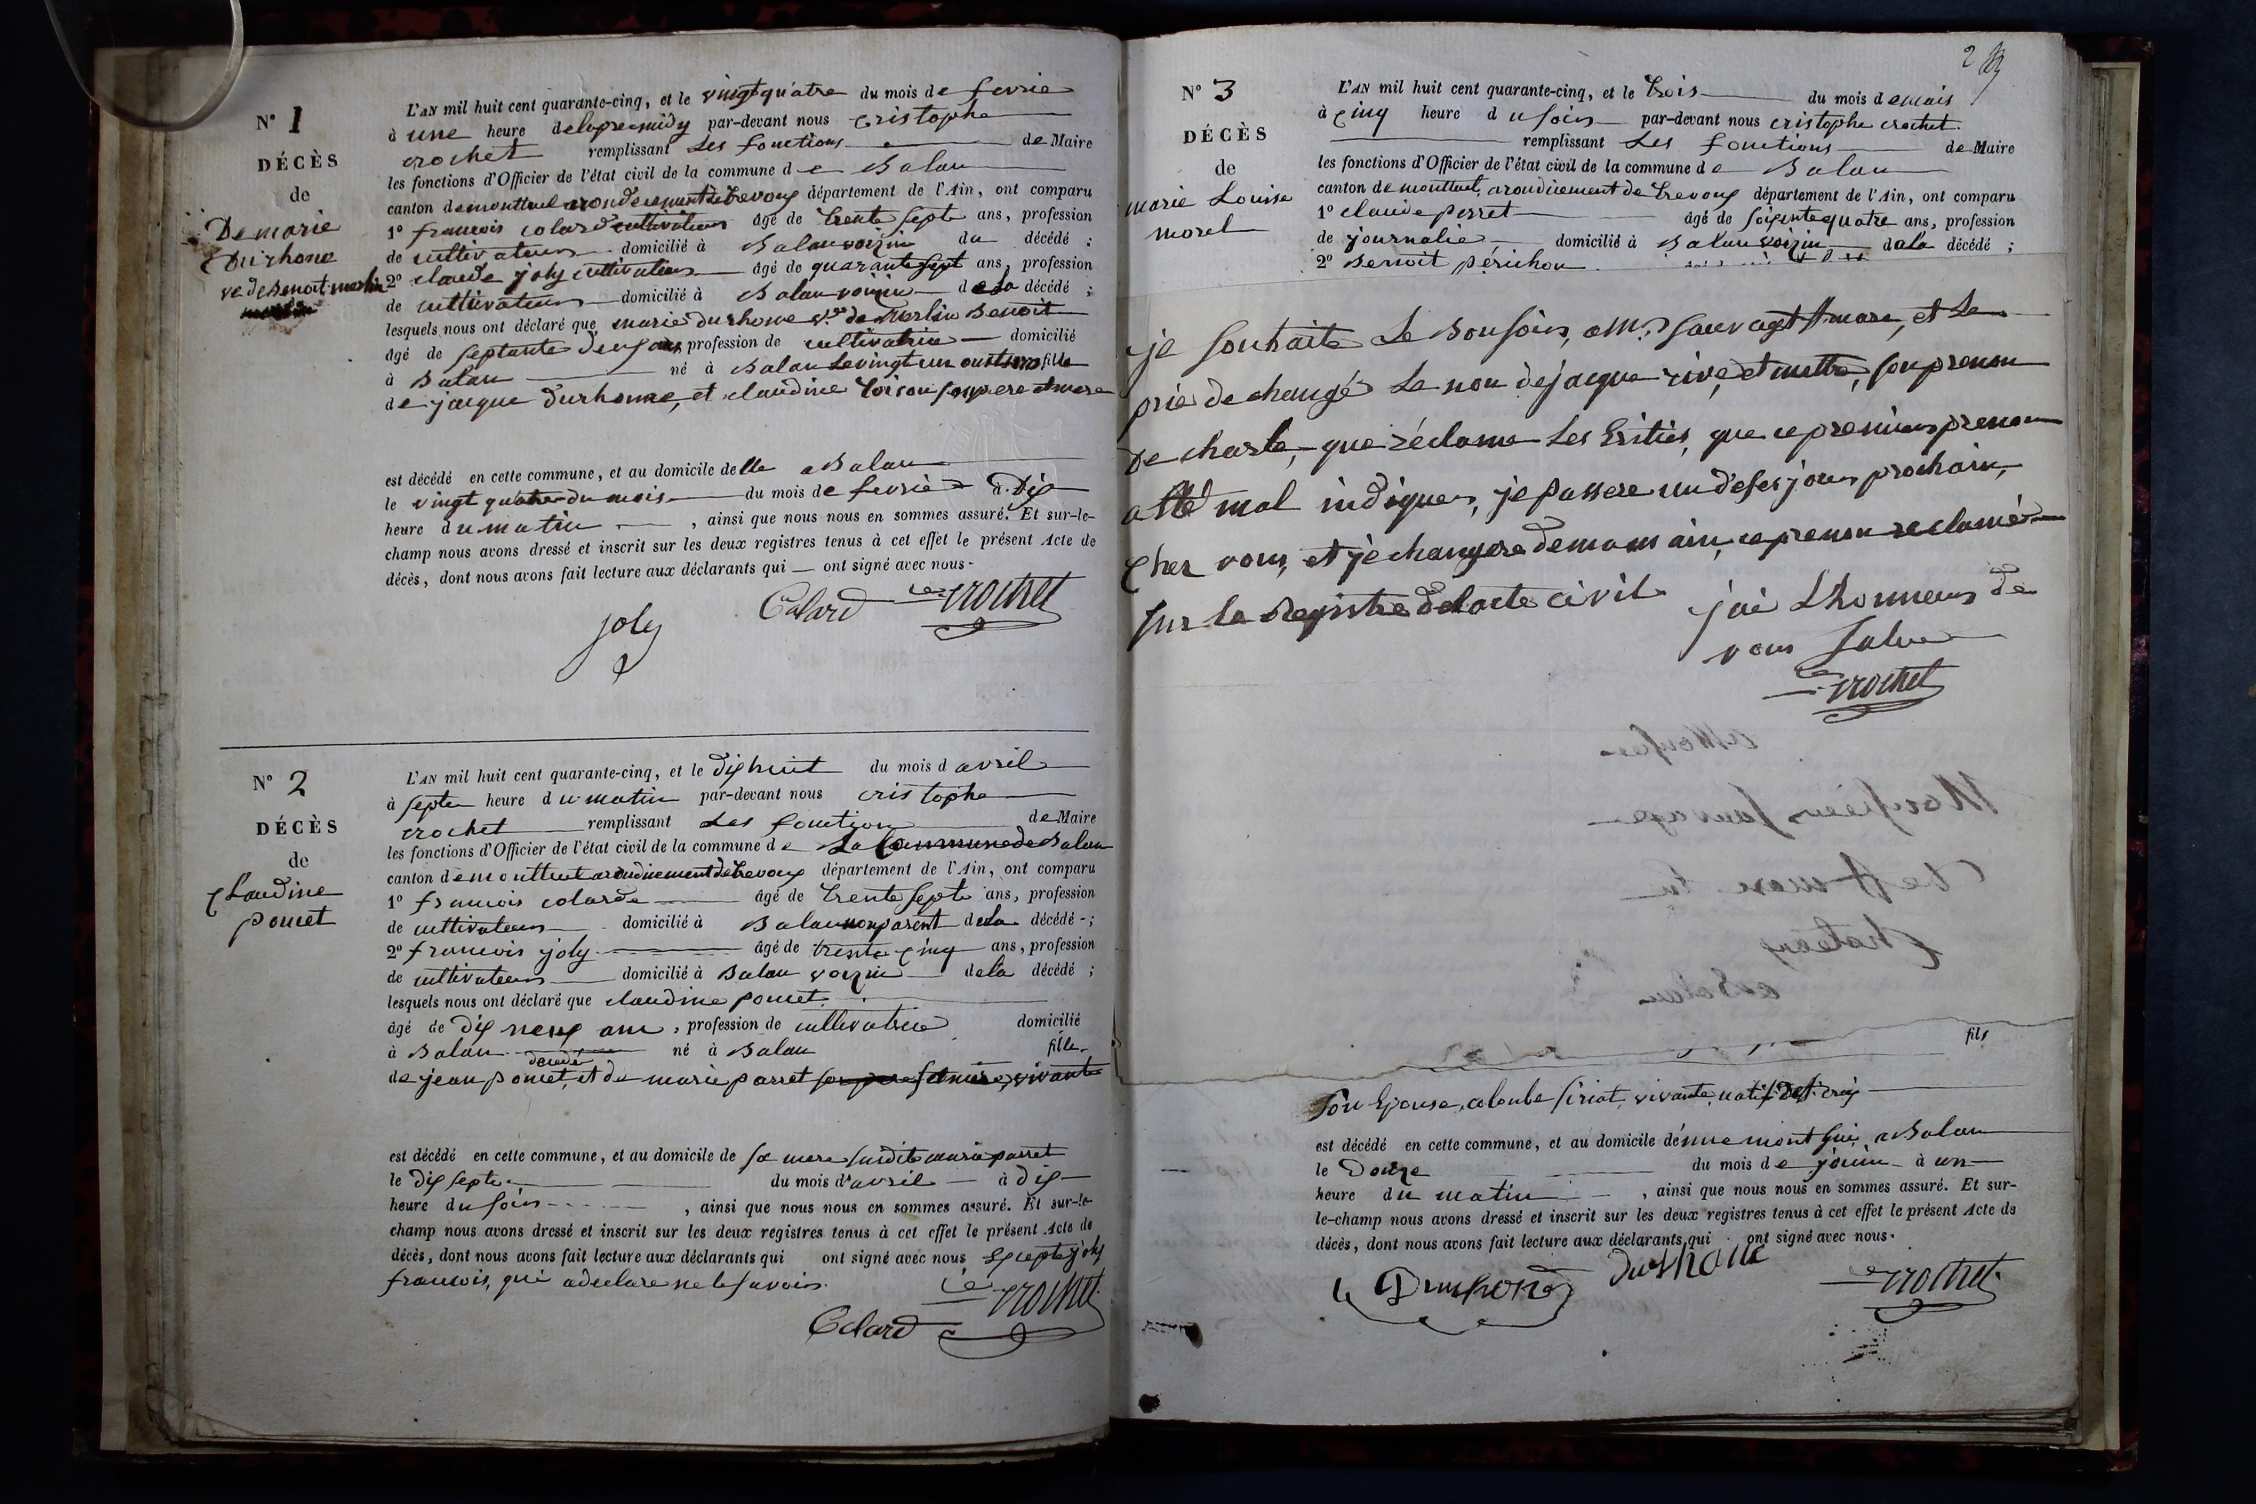 N° 1
DÉCÈS
de
De marie
Durhone
ve de Benoit merlin
L'AN mil huit cent quarante-cinq, et le vingt quatre du mois de fevrie
à une heure par-devant nous cristophe
crochet remplissant Les fonctions de Maire
les fonctions d'Officier de l'état civil de la commune de Balan
canton de montluel arondicement de trevoux département de l'Ain, ont comparu
1° francois colard cultivateur âgé de trente sept ans, profession
de cultivateur domicilié à Balan voizin du décédé ;
2° claude joly cultivateur âgé de quarante sept ans, profession
de cultivateur domicilié à Balan voizin de la décédé ;
lesquels nous ont déclaré que marie durhone ve de Merlin Benoit
âgé de septante deux ans profession de cultivatrice domicilié
à Balan né à Balan Le vingt un fille
de jacque durhonne, et claudine son pere et mere
est décédé en cette commune, et au domicile delle a Balan
le vingt quatre du mois du mois de fevrie à Dix
heure du matin , ainsi que nous nous en sommes assuré. Et sur-le-
champ nous avons dressé et inscrit sur les deux registres tenus à cet effet le présent Acte de
décès, dont nous avons fait lecture aux déclarants qui ont signé avec nous.
joly Colard crochet
N° 2
DÉCÈS
de
Claudine
poncet
L'AN mil huit cent quarante-cinq, et le dix huit du mois d avril
à septe heure du matin par-devant nous cristophe
crochet remplissant Les fonction de Maire
les fonctions d'Officier de l'état civil de la commune de La Commune de Balan
canton de montluel arondicement de trevoux département de l'Ain, ont comparu
1° francois colard âgé de trente septe ans, profession
de cultivateur domicilié à Balan non parent de la décédé ;
2° francois joly âgé de trente cinq ans, profession
de cultivateur domicilié à Balan voizin de la décédé ;
lesquels nous ont déclaré que claudine poncet
âgé de dix neuf ans, profession de cultivatrice domicilié
à Balan né à Balan fille
décédé
de jean poncet, et de marie parret son pere et mere, vivante
est décédé en cette commune, et au domicile de sa mere susdite marie parret
le dix septe du mois d'avril à dix
heure du soir , ainsi que nous nous en sommes assuré. Et sur-le-
champ nous avons dressé et inscrit sur les deux registres tenus à cet effet le présent Acte de
décès, dont nous avons fait lecture aux déclarants qui ont signé avec nous Excepte joly
francois, qui a declare ne le savoir.
Colard crochet
N° 3
DÉCÈS
de
marie Louise
morel
L'AN mil huit cent quarante-cinq, et le trois du mois de mais
à cinq heure du soir par-devant nous cristophe crochet
remplissant Les fonctions de Maire
les fonctions d'Officier de l'état civil de la commune de Balan
canton de montluel, arondicement de trevoux département de l'Ain, ont comparu
1° claude perret âgé de soisente quatre ans, profession
de journalié domicilié à Balan voizin de la décédé ;
2° Benoit périchon
je souhaite Le Bonsoir, a Mr sauvage st mare, et Le
prie de changé Le nom de jacque rive, et mettre, son prenom
De charle, que réclame Les Eritiés, que ce premier prenom
a été mal indiquer, je passere un de ses jours prochain,
cher vous, et je changere de ma main, ce prenom reclamé
sur Le Registre de lacte civil jai Lhonneur de
vous Saluer
crochet
Monsieur Sauvage
Chateaux
a Balan
fils
Son Epouse, colombe siriat, vivante, natif de st crix
est décédé en cette commune, et au domicile a Balan
le Douze du mois de jouin à un
heure du matin , ainsi que nous nous en sommes assuré. Et sur-
le-champ nous avons dressé et inscrit sur les deux registres tenus à cet effet le présent Acte de
décès, dont nous avons fait lecture aux déclarants qui ont signé avec nous.
Durhone crochet